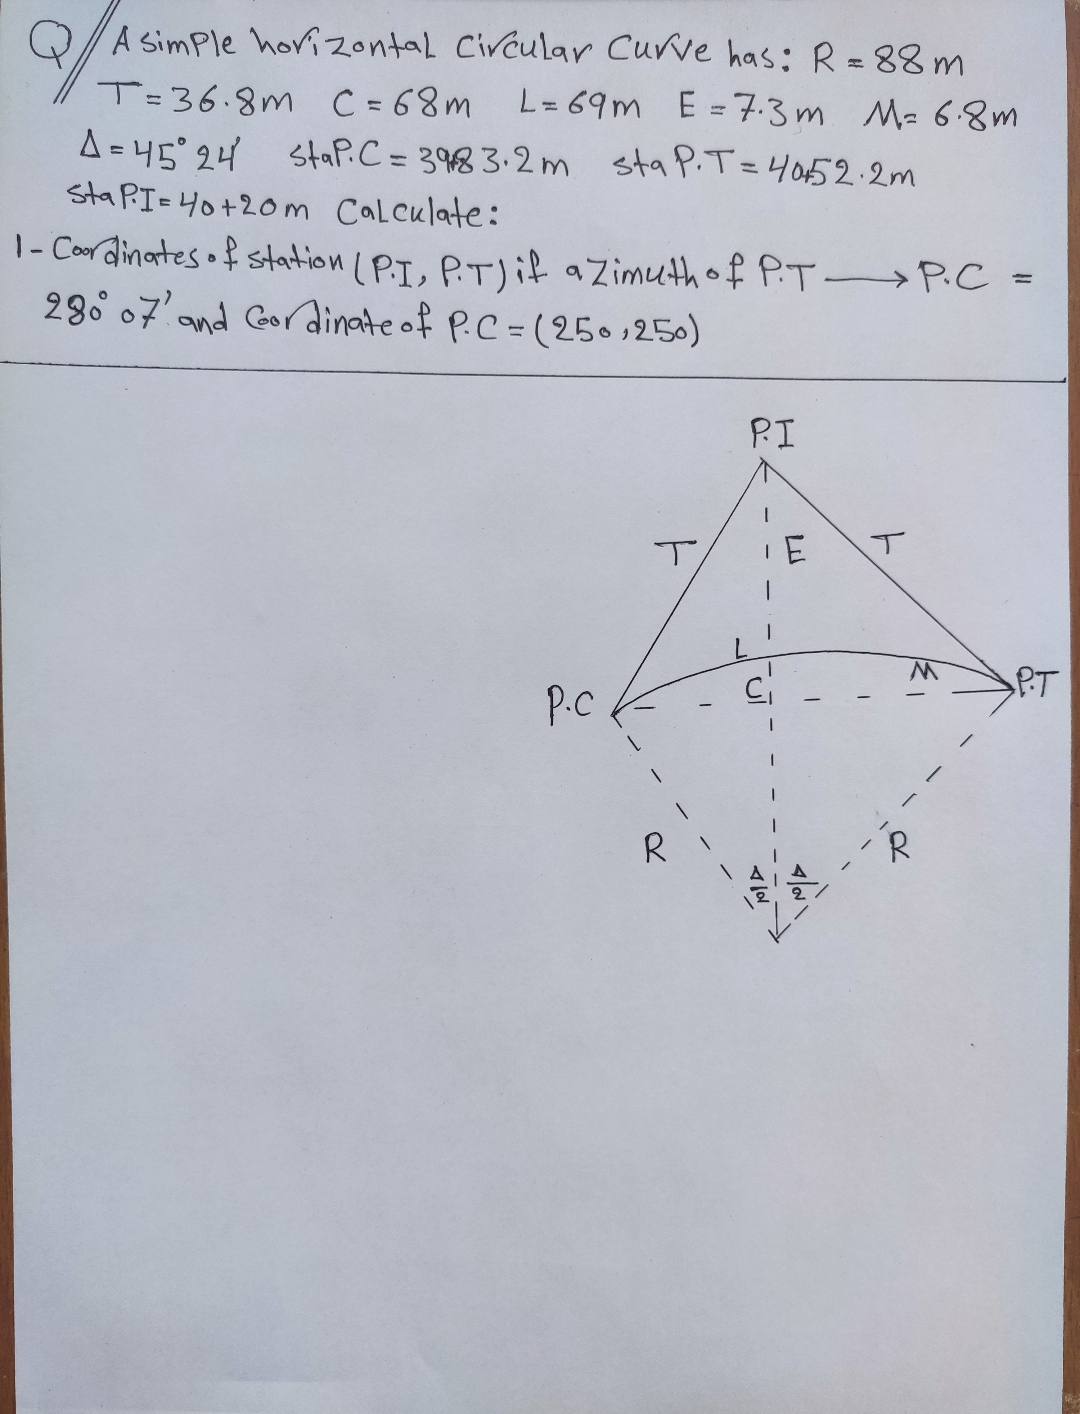 Q// A simple horizontal Circular Curve has: R = 88 m
T = 36.8m C = 68m L = 69m E = 7.3m M = 6.8m
Δ = 45° 24' sta P.C = 3983.2m sta P.T = 4052.2m
sta P.I = 40+20m Calculate:
1- Coordinates of station (P.I, P.T) if azimuth of P.T → P.C =
280° 07' and Coordinate of P.C = (250,250)
P.I
T E T
L
M
P.C C P.T
R R
Δ/2 Δ/2